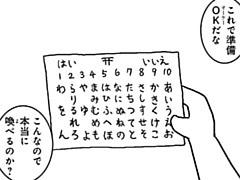 これで準備
OKだな
はい ⛩ いいえ
1 2 3 4 5 6 7 8 9 10
わ ら や ま は な た さ か あ
り み ひ に ち し き い
を る ゆ む ふ ぬ つ す く う
れ め へ ね て せ け え
ん ろ よ も ほ の と そ こ お
こんなので
本当に
喚べるのか?